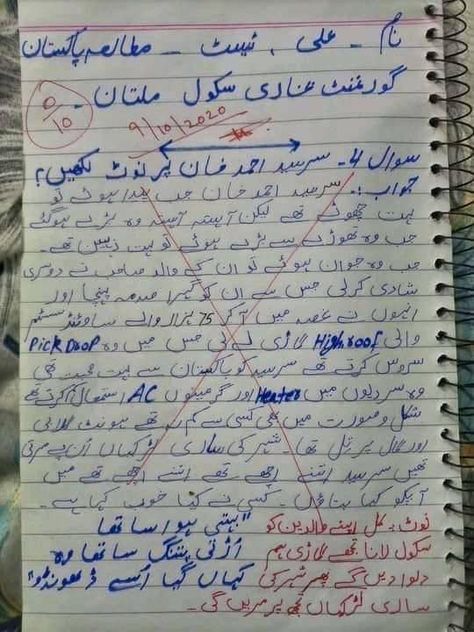 نام - علی ، ٹیسٹ - مطالعہ پاکستان
گورنمنٹ غازی سکول ملتان -
0/10
9/10/2020
سوال 4- سرسید احمد خان پر نوٹ لکھیں؟
جواب :- سرسید احمد خان جب پیدا ہوئے تو
بہت چھوٹے تھے لیکن آہستہ آہستہ وہ بڑے ہو گئے
جب وہ تھوڑے سے بڑے ہوئے تو بہت ذہین تھے -
جب وہ جوان ہوئے تو ان کے والد صاحب نے دوسری
شادی کر لی جس سے ان کو گہرا صدمہ پہنچا اور
انہوں نے غصہ میں آ کر 75 ہزار والے ساونڈ سسٹم
والی High roof گاڑی لے لی جس میں وہ Pick Drop
سروس کرتے تھے سرسید کو پاکستان سے بہت محبت تھی
وہ سردیوں میں Heater اور گرمیوں AC استعمال کرتے تھے
شکل و صورت میں بھی کسی سے کم نہ تھے ہونٹ گلابی
اور گال پر تل تھا - شہر کی ساری لڑکیاں ان پے مرتی
تھیں سرسید اتنے اچھے تھے اتنے اچھے تھے میں
آپکو کیا بتاؤں - کسی نے کیا خوب کہا ہے -
"بہتی ہوا سا تھا
اڑتی پتنگ سا تھا وہ
کہاں گیا اسے ڈھونڈو"
نوٹ : کل اپنے والدین کو
سکول لانا تجھے گاڑی ہم
دلوا دیں گے پھر شہر کی
ساری لڑکیاں تجھ پر مریں گی -